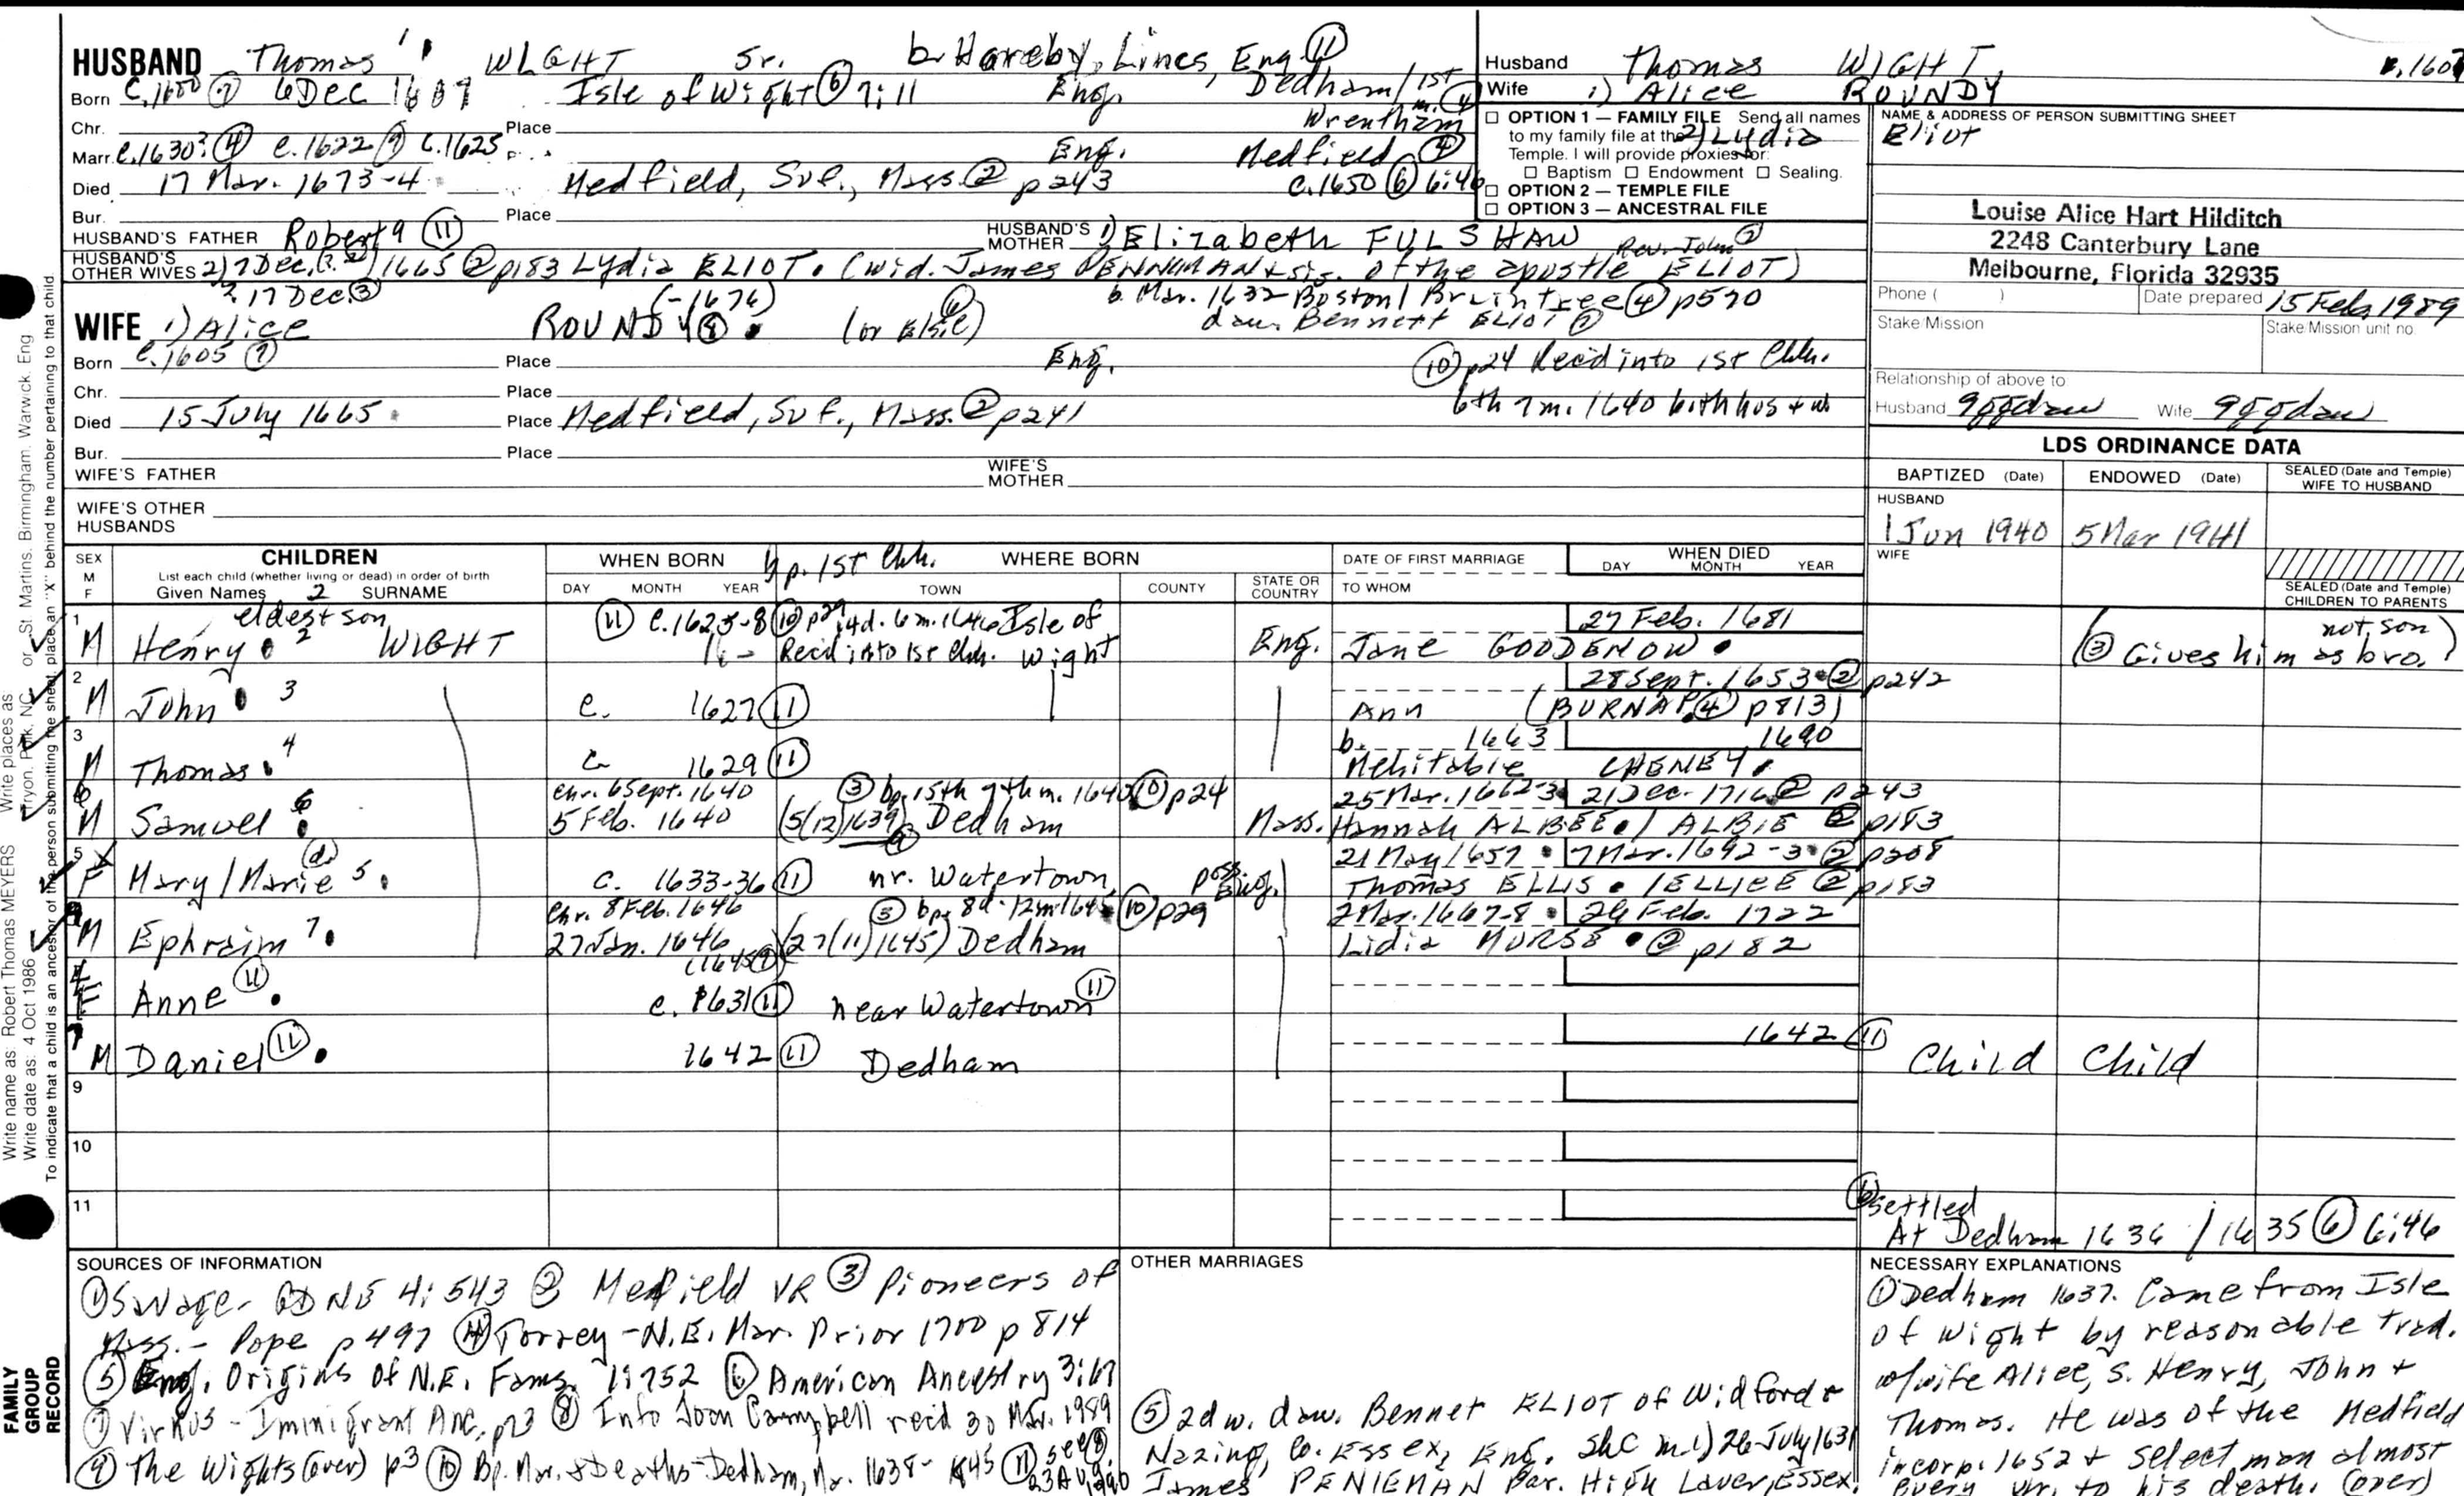 HUSBAND Thomas 1 WIGHT Sr. b. Hareby, Lincs, Eng (11)
Born c.1600 (7) 6 Dec 1607 Isle of Wight (6) 7:11 Eng. Dedham/1st
Chr. Place Wrentham m. (4)
Marr. c.1630? (4) c.1622 (9) c.1625 Eng. Medfield (4)
Died 17 Mar. 1673-4 Medfield, Suf., Mass. (2) p243 c.1650 (6) 6:46
Bur. Place
HUSBAND'S FATHER Robert 9 (11) HUSBAND'S MOTHER 1) Elizabeth FULSHAW
HUSBAND'S OTHER WIVES 2) 7 Dec. 1665 (2) p183 Lydia ELIOT. (wid. James PENNIMAN & sis. of the apostle Rev. John (2) ELIOT)
? 17 Dec (3) (-1676) b. Mar. 1632 Boston/Braintree (4) p570
WIFE 1) Alice ROUNDY (8) (or Elsie) dau. Bennett ELIOT (2)
Born c.1605 (7) Place Eng. (10) p24 Rec'd into 1st Chh.
Chr. Place 6th 7m. 1640 both hus + w
Died 15 July 1665 Place Medfield, Suf., Mass. (2) p241
Bur. Place
WIFE'S FATHER WIFE'S MOTHER
WIFE'S OTHER HUSBANDS
Husband Thomas WIGHT, b.1607
Wife 1) Alice ROUNDY
2) Lydia Eliot
OPTION 1 — FAMILY FILE Send all names
to my family file at the
Temple. I will provide proxies for:
Baptism Endowment Sealing.
OPTION 2 — TEMPLE FILE
OPTION 3 — ANCESTRAL FILE
NAME & ADDRESS OF PERSON SUBMITTING SHEET
Louise Alice Hart Hilditch
2248 Canterbury Lane
Melbourne, Florida 32935
Phone ( ) Date prepared 15 Feb. 1989
Stake/Mission Stake/Mission unit no.
Relationship of above to
Husband 9ggdau Wife 9ggdau
LDS ORDINANCE DATA
BAPTIZED (Date) ENDOWED (Date) SEALED (Date and Temple) WIFE TO HUSBAND
HUSBAND
1 Jun 1940 5 Mar 1941
WIFE
SEALED (Date and Temple) CHILDREN TO PARENTS
SEX M F CHILDREN WHEN BORN bp. 1st Chh. WHERE BORN DATE OF FIRST MARRIAGE WHEN DIED
List each child (whether living or dead) in order of birth
Given Names 2 SURNAME DAY MONTH YEAR TOWN COUNTY STATE OR COUNTRY TO WHOM DAY MONTH YEAR
1 eldest son (11) c.1625-8 (10) p29 4d. 6m. 1646 Isle of 27 Feb. 1681
M Henry 2 WIGHT Rec'd into 1st Chh. Wight Eng. Jane GOODENOW (3) Gives him as bro. not son)
2 28 Sept. 1653 (2) p242
M John 3 c. 1627 (11) Ann (BURNAP (4) p813)
3 b. 1663 1690
M Thomas 4 c. 1629 (11) Mehitable CHENEY
6 chr. 6 Sept. 1640 (3) bp. 15th 9th m. 1640 (10) p24 25 Mar. 1662-3 21 Dec. 1716 (2) p243
M Samuel 6 5 Feb. 1640 (5(12)1639) (9) Dedham Mass. Hannah ALBEE / ALBIE (2) p183
5 X 21 May 1657 7 Mar. 1692-3 (2) p208
F Mary/Marie 5 (d) c. 1633-36 (11) nr. Watertown, poss. Eng. Thomas ELLIS / ELLICE (2) p183
chr. 8 Feb. 1646 (3) bp. 8d. 12m 1645 (10) p29 2 Mar. 1667-8 26 Feb. 1722
M Ephraim 7 27 Jan. 1646 (27(11)1645) Dedham Lidia MORSE (2) p182
(1645 (9)
F Anne (11) c. 1631 (11) near Watertown (11)
7 1642 (11)
M Daniel (11) 1642 (11) Dedham Child Child
9
10
11
(6) settled
At Dedham 1636 / 1635 (6) 6:46
SOURCES OF INFORMATION
(1) Savage- GDNE 4:543 (2) Medfield VR (3) Pioneers of
Mass.- Pope p497 (4) Torrey-N.E. Mar. Prior 1700 p814
(5) Eng. Origins of N.E. Fams. 1:752 (6) American Ancestry 3:61
(7) Virkus - Immigrant Anc. p73 (8) Info Joan Campbell rec'd 30 Mar. 1989
(9) The Wights (over) p3 (10) Bp. Mar. & Deaths-Dedham, Ma. 1638-1845 (11) see (8) 23 Aug. 1990
OTHER MARRIAGES
(5) 2d w. dau. Bennet ELIOT of Widford &
Nazing, Co. Essex, Eng. She m. 1) 26 July 1631
James PENIEMAN Par. High Laver, Essex.
NECESSARY EXPLANATIONS
(1) Dedham 1637. Came from Isle
of Wight by reasonable trad.
w/wife Alice, s. Henry, John +
Thomas. He was of the Medfield
incorp. 1652 + selectman almost
every yr. to his death. (over)
FAMILY GROUP RECORD
Write name as: Robert Thomas MEYERS Write places as
Write date as: 4 Oct 1986 Tryon, Polk, NC or St. Martins, Birmingham, Warwick, Eng
To indicate that a child is an ancestor of the person submitting the sheet, place an "X" behind the number pertaining to that child.